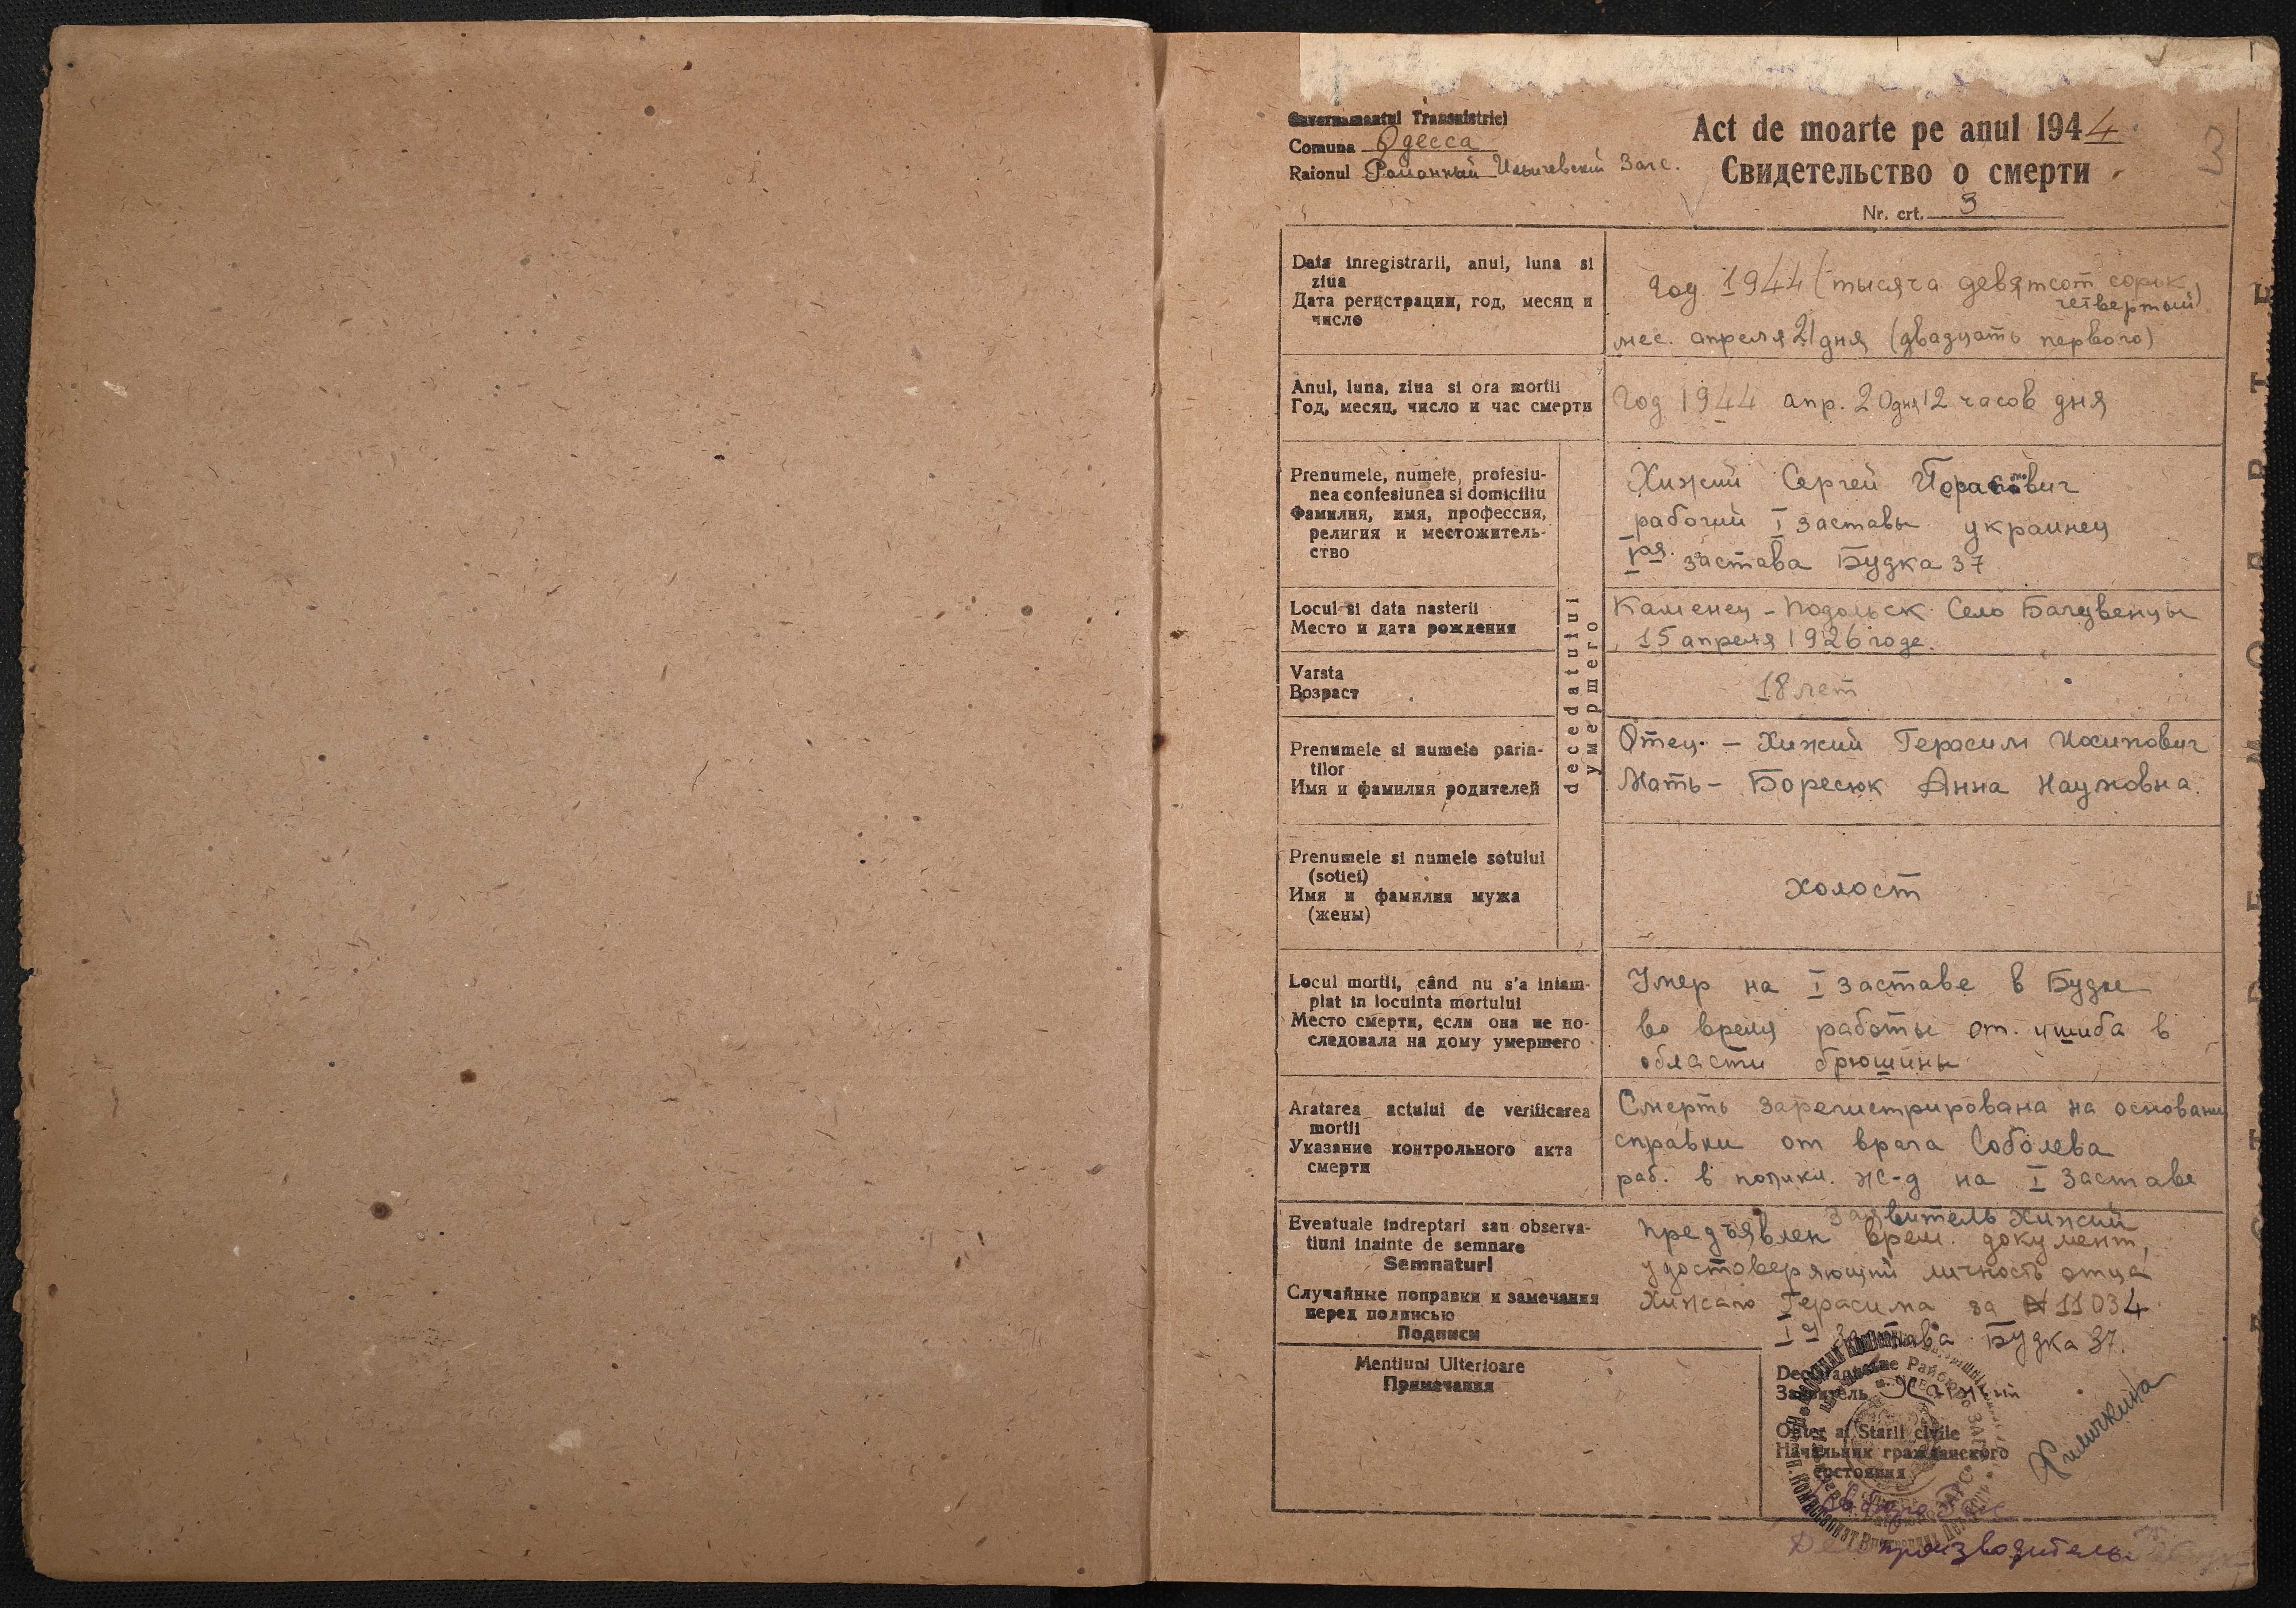 Guvernamantul Transnistriei
Comuna Одесса
Raionul Районный Ильичевский Загс.
Act de moarte pe anul 1944
Свидетельство о смерти
Nr. crt. 3
3
Data inregistrarii, anul, luna si
ziua
Дата регистрации, год, месяц и
число
Год 1944 (тысяча девятсот сорок
четвертый)
мес. апреля 21 дня (двадцать первого)
Anul, luna, ziua si ora mortii
Год, месяц, число и час смерти
Год 1944 апр. 20 дня 12 часов дня
decedatului
умершего
Prenumele, numele, profesiu-
nea confesiunea si domiciliu
Фамилия, имя, профессия,
религия и местожитель-
ство
Хижий Сергей
рабочий I заставы украинец
I ая застава Будка 37
Locul si data nasterii
Место и дата рождения
Каменец - Подольск Село Багувенцы
15 апреля 1926 годе.
Varsta
Возраст
18 лет
Prenumele si numele parin-
tilor
Имя и фамилия родителей
Отец - Хижий Герасим Иосипович
Мать - Боресюк Анна Наумовна.
Prenumele si numele sotului
(sotiei)
Имя и фамилия мужа
(жены)
холост
Locul mortii, când nu s'a intam-
plat in locuinta mortului
Место смерти, если она не по-
следовала на дому умершего
Умер на I заставе в Будке
во время работы от ушиба в
области брюшины
Aratarea actului de verificarea
mortii
Указание контрольного акта
смерти
Смерть зарегистрирована на основани
справки от врача Соболева
раб. в поликл. ж-д на I Заставе
Eventuale indreptari sau observa-
tiuni inainte de semnare
Semnaturi
Случайные поправки и замечания
перед подписью
Подписи
Заявитель Хижий
предъявлен врем. документ,
удостоверяющий личность отца
Хижаго Герасима за № 11034
I я Застава Будка 37.
Mentiuni Ulterioare
Примечания
Declarant
Заявитель Хижий
Ofiter al Starii civile
Начальник гражданского
состояния
Химичкина
Делопроизводитель